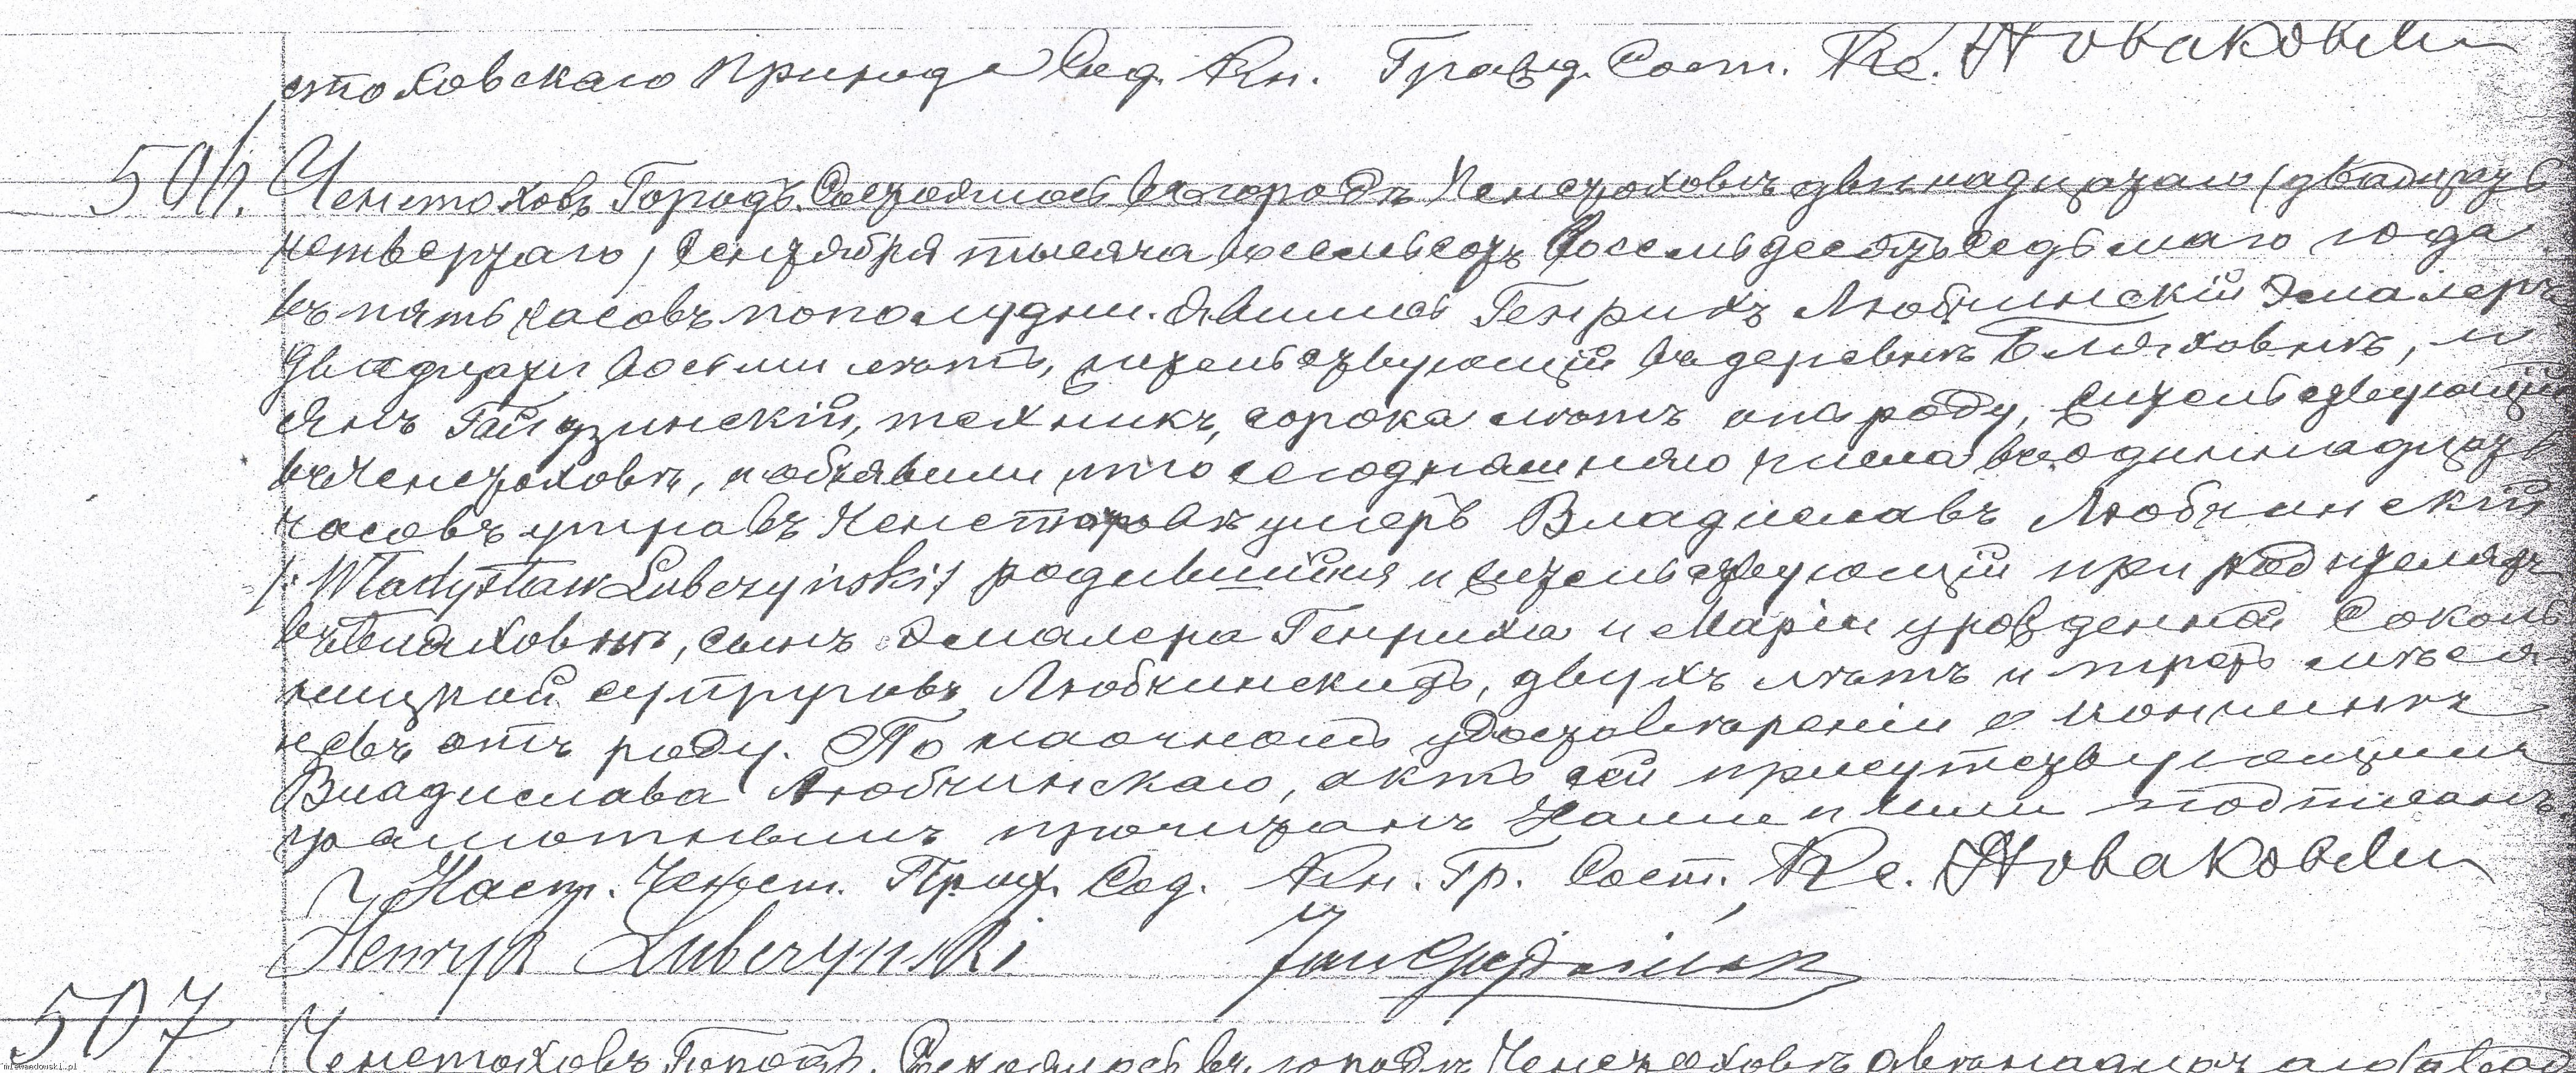 стоховскаго Прихода Сод. Кн. Гражд. Сост. Кс. Новаковски
506. Ченстоховъ Городъ. Состоялось въ городѣ Ченстоховѣ двѣнадцатаго (двадцать
четвертаго) Сентября тысяча восемьсотъ восемьдесятъ седьмаго года
въ пять часовъ пополудни. Явились Генрихъ Любчинскій Эмалеръ
двадцати восьми лѣтъ, жительствующій въ деревнѣ Бляховнѣ, и
Янъ Гайдзинскій, техникъ, сорока лѣтъ отъ роду, жительствующій
въ Ченстоховѣ, и объявили что сегодняшняго числа въ одиннадцать
часовъ утра въ Ченстоховѣ умеръ Владиславъ Любчинскій
/: Władysław Lubczyński :/ родившійся и жительствующій при родителяхъ
въ Бляховнѣ, сынъ Эмалера Генриха и Маріи урожденной Соколь
ницкой супруговъ Любчинскихъ, двухъ лѣтъ и трехъ мѣся
цевъ отъ роду. По наочномъ удостовѣреніи о кончинѣ
Владислава Любчинскаго, актъ сей присутствующимъ
грамотнымъ прочитанъ Нами и ими подписанъ.
Наст. Ченст. Прих. Сод. Кн. Гр. Сост. Кс. Новаковски
Henryk Lubczynski Jan Gajdziński
507 Ченстоховъ Городъ. Состоялось въ городѣ Ченстоховѣ двѣнадцатаго (двад
mlewandowski.pl